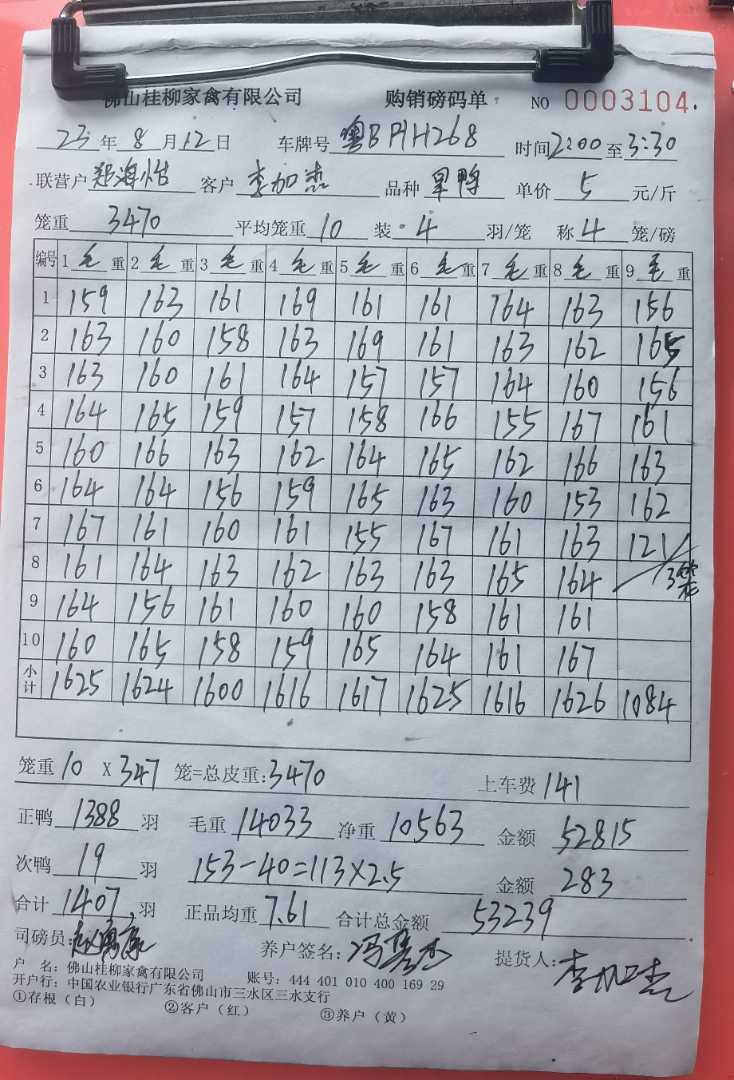 佛山桂柳家禽有限公司 购销磅码单 NO 0003104
23 年 8 月 12 日 车牌号 粤BPH268 时间 2:00 至 3:30
联营户 郑海怡 客户 李加杰 品种 单价 5 元/斤
笼重 3470 平均笼重 10 装 4 羽/笼 称 4 笼/磅
编号 1 毛 重 2 毛 重 3 毛 重 4 毛 重 5 毛 重 6 毛 重 7 毛 重 8 毛 重 9 毛 重
1 159 163 161 169 161 161 164 163 156
2 163 160 158 163 169 161 163 162 165
3 163 160 161 164 157 157 164 160 156
4 164 165 159 157 158 166 155 167 161
5 160 166 163 162 164 165 162 166 163
6 164 164 156 159 165 163 160 153 162
7 167 161 160 161 155 167 161 163 121/3笼
8 161 164 163 162 163 163 165 164
9 164 156 161 160 160 158 161 161
10 160 165 158 159 165 164 161 167
小计 1625 1624 1600 1616 1617 1625 1616 1626 1084
笼重 10 X 347 笼=总皮重:3470 上车费 141
正鸭 1388 羽 毛重 14033 净重 10563 金额 52815
次鸭 19 羽 153-40=113×2.5 金额 283
合计 1407 羽 正品均重 7.61 合计总金额 53239
司磅员: 养户签名: 提货人: 李加杰
户 名: 佛山桂柳家禽有限公司 账号: 444 401 010 400 169 29
开户行: 中国农业银行广东省佛山市三水区三水支行
①存根（白） ②客户（红） ③养户（黄）